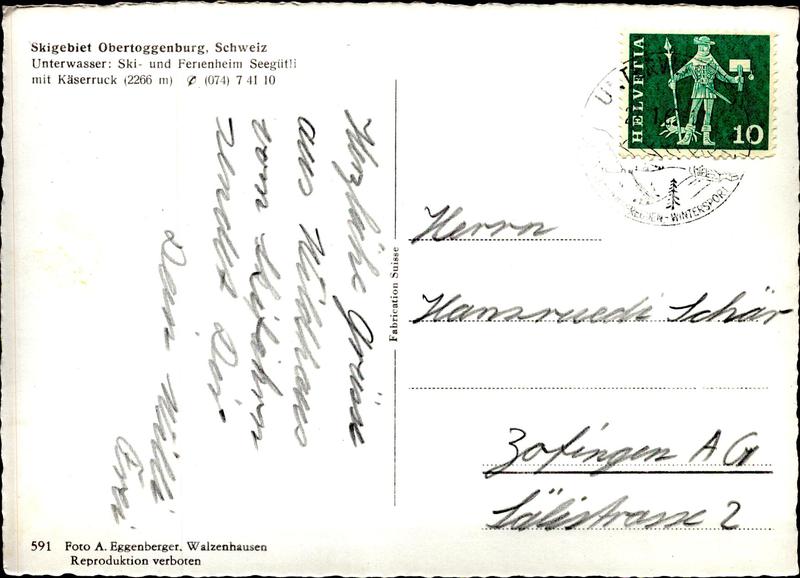 Skigebiet Obertoggenburg, Schweiz
Unterwasser: Ski- und Ferienheim Seegütli
mit Käserruck (2266 m) ✆ (074) 7 41 10
HELVETIA
10
WINTERSPORT
Herzliche Grüsse
aus
vom
sendet Dir
Dein Willi
Herrn
Hansruedi Schär
Zofingen AG
Sälistrasse 2
Fabrication Suisse
591 Foto A. Eggenberger, Walzenhausen
Reproduktion verboten